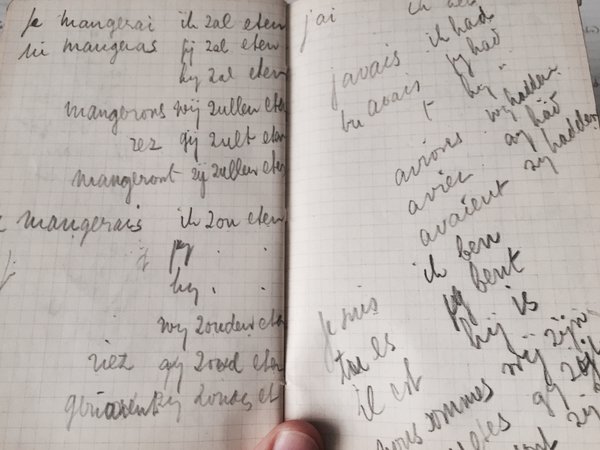 je mangerai ik zal eten
tu mangeras jij zal eten
hij zal eten
mangerons wij zullen eten
rez gij zult eten
mangeront zij zullen eten
mangerais ik zou eten
hij
wij zouden eten
riez gij zoud eten
j'ai
j'avais ik had
tu avais jij had
hij "
avions wij hadden
aviez gij had
avaient zij hadden
ik ben
je suis jij bent
tu es hij is
il est wij zijn
nous sommes gij zijt